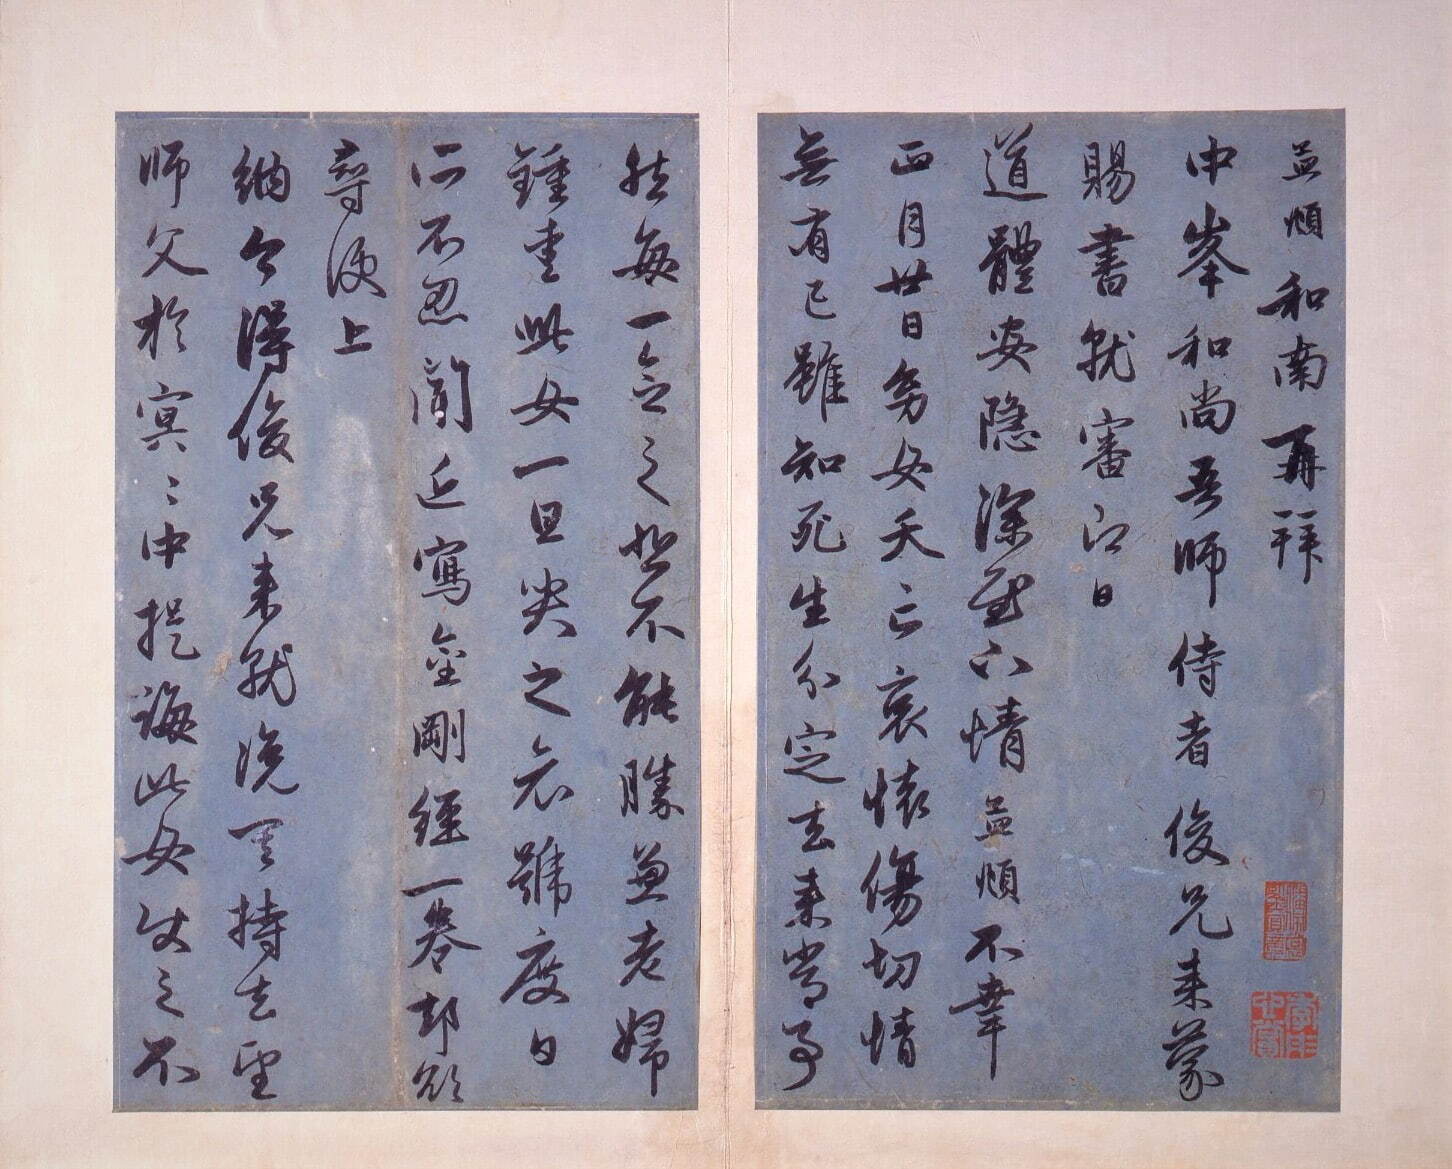 孟頫和南再拜
中峯和尚吾師侍者俊兄来蒙
賜書就審即日
道體安隱深慰下情孟頫不幸
正月廿日幼女夭亡哀懷傷切情
無有已雖知死生分定去来常事
然每一念之悲不能勝兼老婦
鍾愛此女一旦哭之哀號度日
所不忍聞近寫金剛經一卷却欲
尋便上
納今得俊兄来就浼其持去望
師父於冥〻中提誨此女使之不